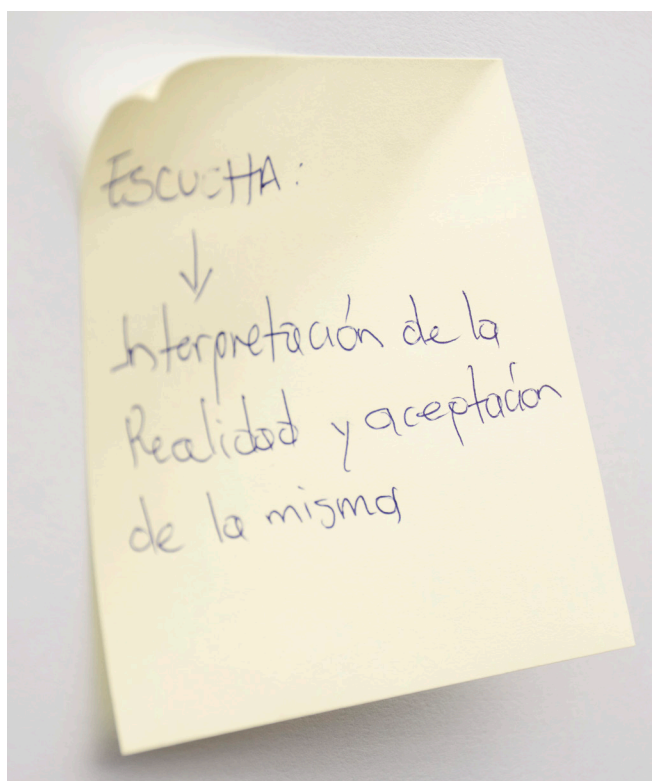 ESCUCHA:
↓
Interpretación de la
Realidad y aceptación
de la misma